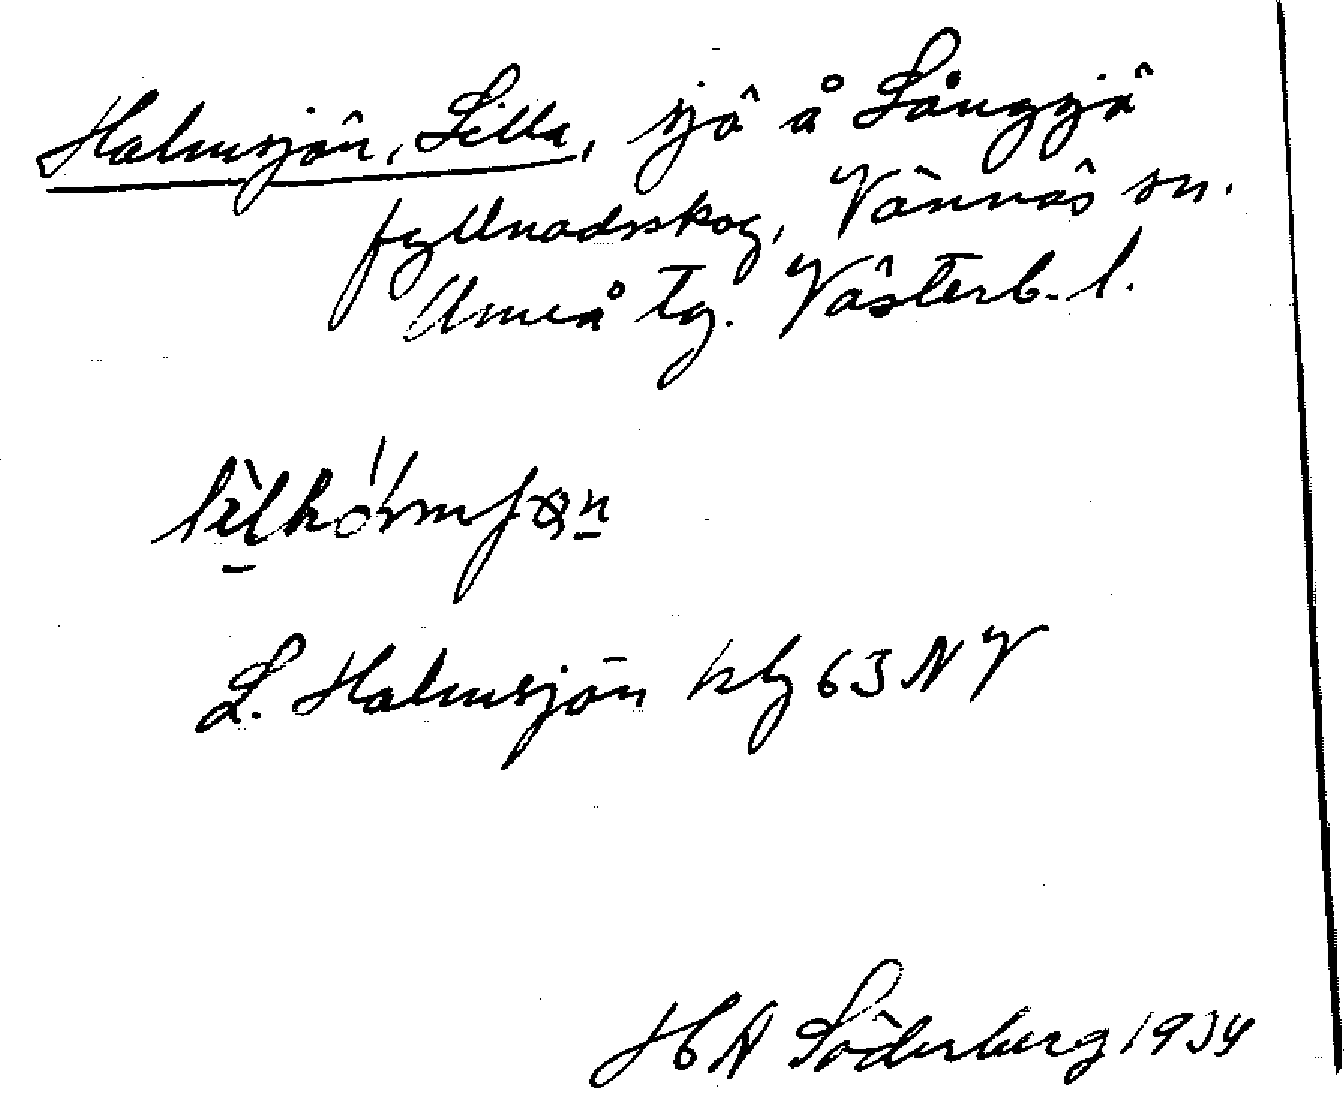 Halmsjön, Lilla, sjö å Långsjö
fyllnadsskog, Vännäs sn.
Umeå tg. Västerb. l.
L. Halmsjön kbl 63 NV
H A Söderberg 1934